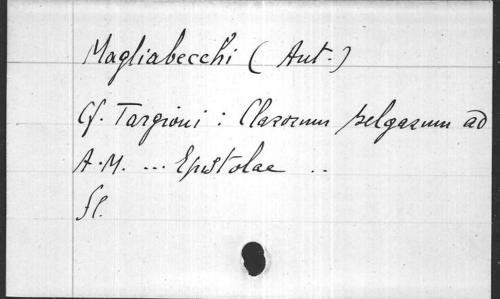 Magliabecchi (Ant.)
Cf. Targioni : Clarorum belgarum ad
A.M. ... Epistolae ..
fl.